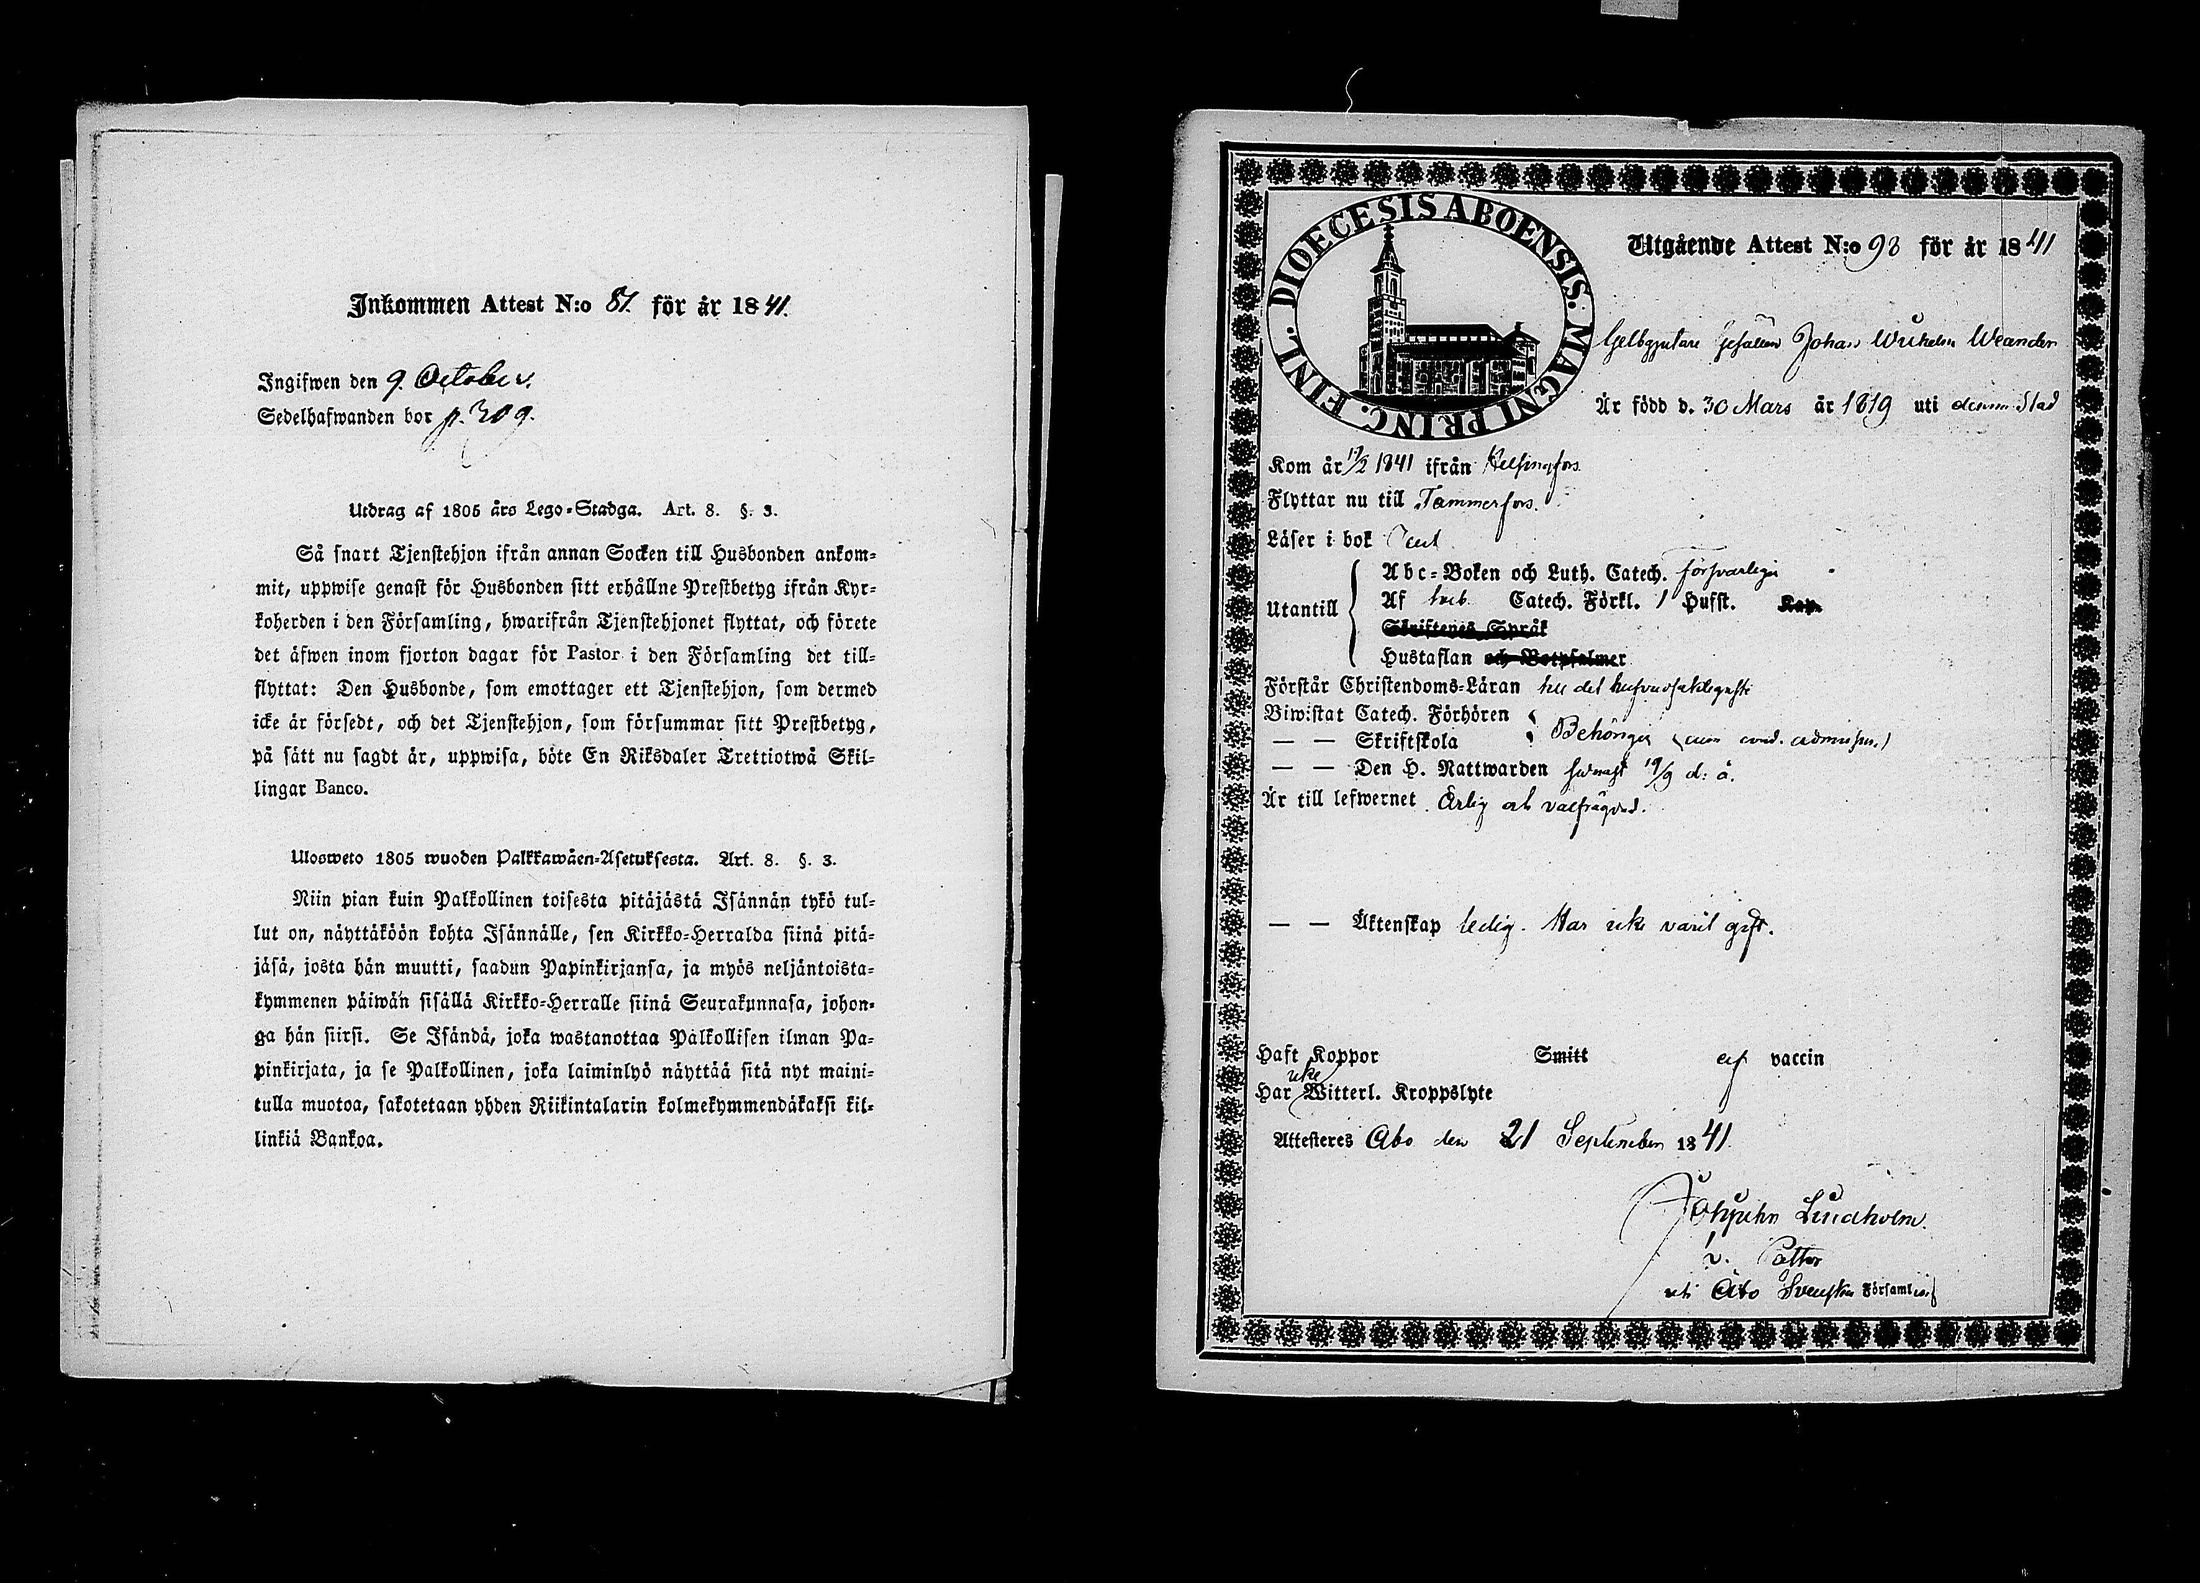 Inkommen Attest N:o 81. för år 1841.
Ingifwen den 9. October.
Sedelhafwanden bor p. 309.
Utdrag af 1805 års Lego-Stadga. Art. 8. §. 3.
Så snart Tjenstehjon ifrån annan Socken till Husbonden ankom-
mit, uppwise genast för Husbonden sitt erhållne Prestbetyg ifrån Kyr-
koherden i den Församling, hwarifrån Tjenstehjonet flyttat, och förete
det äfwen inom fjorton dagar för Pastor i den Församling det till-
flyttat: Den Husbonde, som emottager ett Tjenstehjon, som dermed
icke är försedt, och det Tjenstehjon, som försummar sitt Prestbetyg,
på sätt nu sagdt är, uppwisa, böte En Riksdaler Trettiotwå Skil-
lingar Banco.
Ulosweto 1805 wuoden Palkkawäen-Asetuksesta. Art. 8. §. 3.
Niin pian kuin Palkollinen toisesta pitäjästä Isännän tykö tul-
lut on, näyttäköön kohta Isännälle, sen Kirkko-Herralda siinä pitä-
jäsä, josta hän muutti, saadun Papinkirjansa, ja myös neljäntoista-
kymmenen päiwän sisällä Kirkko-Herralle siinä Seurakunnasa, johon-
ga hän siirsi. Se Isändä, joka wastanottaa Palkollisen ilman Pa-
pinkirjata, ja se Palkollinen, joka laiminlyö näyttää sitä nyt maini-
tulla muotoa, sakotetaan yhden Riikintalarin kolmekymmendäkaksi kil-
linkiä Bankoa.
DIOECESIS ABOENSIS. MAGNI PRINC. FINL.
Utgående Attest N:o 93 för år 1841
Gelbgjutare Gesällen Johan Wilhelm Weander
Är född d. 30 Mars år 1819 uti denna Stad
Kom år 19/2 1841 ifrån Helsingfors
Flyttar nu till Tammerfors.
Läser i bok
Utantill
Abc-Boken och Luth. Catech. försvarligen
Af Catech. Förkl. 1 Hufst. Kap.
Skriftenes Språk
Hustaflan och Botpsalmer
Förstår Christendoms-Läran till det hufvudsakligaste
Biwistat Catech. Förhören
— — Skriftskola Behörigen
— — Den H. Nattwarden senast 19/9 d: å.
Är till lefwernet Ärlig och välfrägdad.
— — Äktenskap ledig. Har icke varit gift.
Haft Koppor Smitt af vaccin
Har icke Witterl. Kroppslyte
Attesteres Åbo den 21 September 1841.
Lindholm.
v. Pastor
uti Åbo Svenska Församling